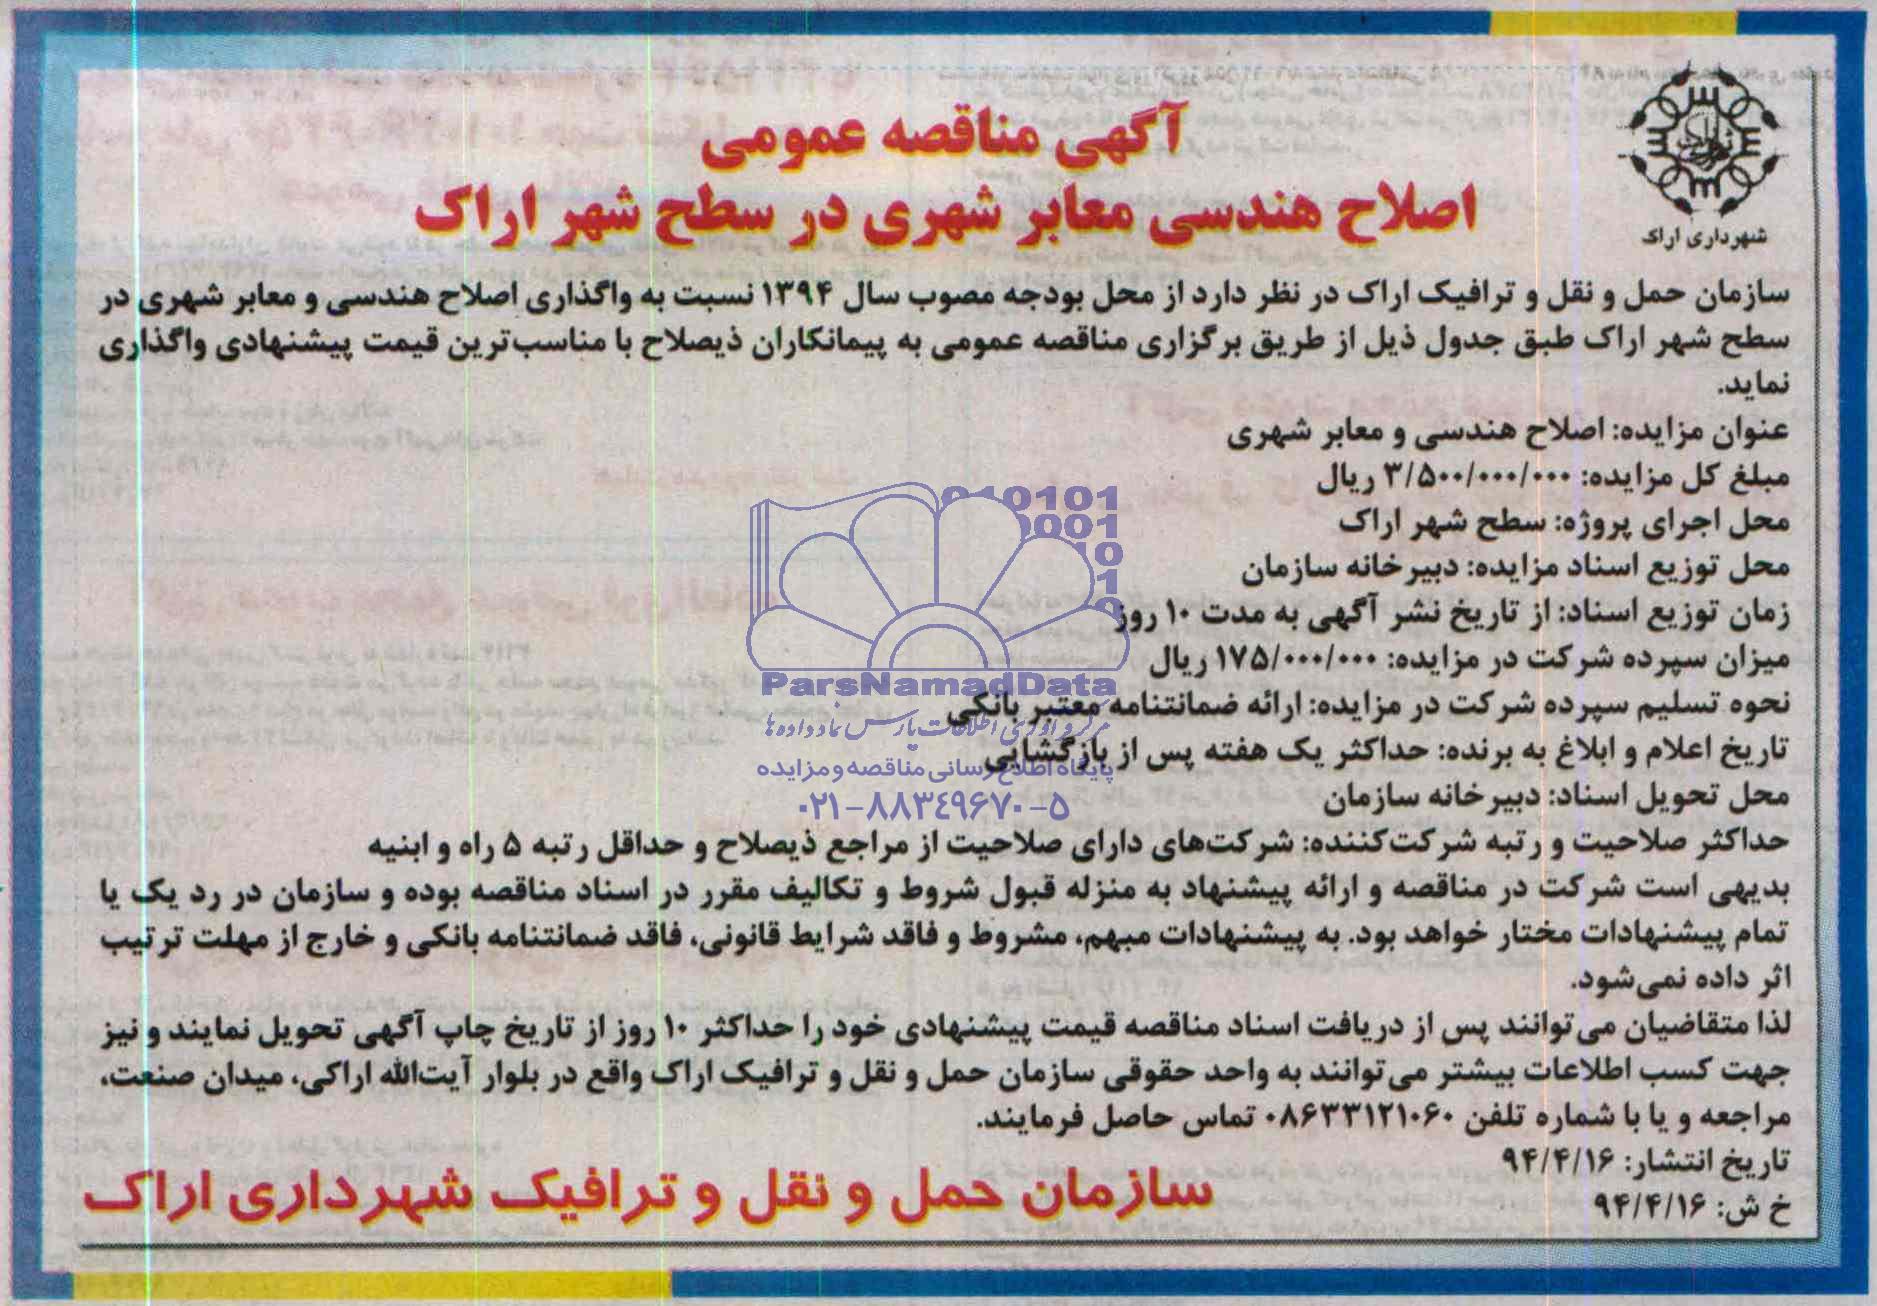 شهرداری اراک
آگهی مناقصه عمومی
اصلاح هندسی معابر شهری در سطح شهر اراک
سازمان حمل و نقل و ترافیک اراک در نظر دارد از محل بودجه مصوب سال ۱۳۹۴ نسبت به واگذاری اصلاح هندسی و معابر شهری در
سطح شهر اراک طبق جدول ذیل از طریق برگزاری مناقصه عمومی به پیمانکاران ذیصلاح با مناسب‌ترین قیمت پیشنهادی واگذاری
نماید.
عنوان مزایده: اصلاح هندسی و معابر شهری
مبلغ کل مزایده: ۳/۵۰۰/۰۰۰/۰۰۰ ریال
محل اجرای پروژه: سطح شهر اراک
محل توزیع اسناد مزایده: دبیرخانه سازمان
زمان توزیع اسناد: از تاریخ نشر آگهی به مدت ۱۰ روز
میزان سپرده شرکت در مزایده: ۱۷۵/۰۰۰/۰۰۰ ریال
نحوه تسلیم سپرده شرکت در مزایده: ارائه ضمانتنامه معتبر بانکی
تاریخ اعلام و ابلاغ به برنده: حداکثر یک هفته پس از بازگشایی
محل تحویل اسناد: دبیرخانه سازمان
حداکثر صلاحیت و رتبه شرکت‌کننده: شرکت‌های دارای صلاحیت از مراجع ذیصلاح و حداقل رتبه ۵ راه و ابنیه
بدیهی است شرکت در مناقصه و ارائه پیشنهاد به منزله قبول شروط و تکالیف مقرر در اسناد مناقصه بوده و سازمان در رد یک یا
تمام پیشنهادات مختار خواهد بود. به پیشنهادات مبهم، مشروط و فاقد شرایط قانونی، فاقد ضمانتنامه بانکی و خارج از مهلت ترتیب
اثر داده نمی‌شود.
لذا متقاضیان می‌توانند پس از دریافت اسناد مناقصه قیمت پیشنهادی خود را حداکثر ۱۰ روز از تاریخ چاپ آگهی تحویل نمایند و نیز
جهت کسب اطلاعات بیشتر می‌توانند به واحد حقوقی سازمان حمل و نقل و ترافیک اراک واقع در بلوار آیت‌الله اراکی، میدان صنعت،
مراجعه و یا با شماره تلفن ۰۸۶۳۳۱۲۱۰۶۰ تماس حاصل فرمایند.
تاریخ انتشار: ۹۴/۴/۱۶
خ ش: ۹۴/۴/۱۶
سازمان حمل و نقل و ترافیک شهرداری اراک
010101
0001
10
1
0
ParsNamadData
مرکز فرآوری اطلاعات پارس نماد داده ها
پایگاه اطلاع رسانی مناقصه و مزایده
۰۲۱-۸۸۳۴۹۶۷۰-۵